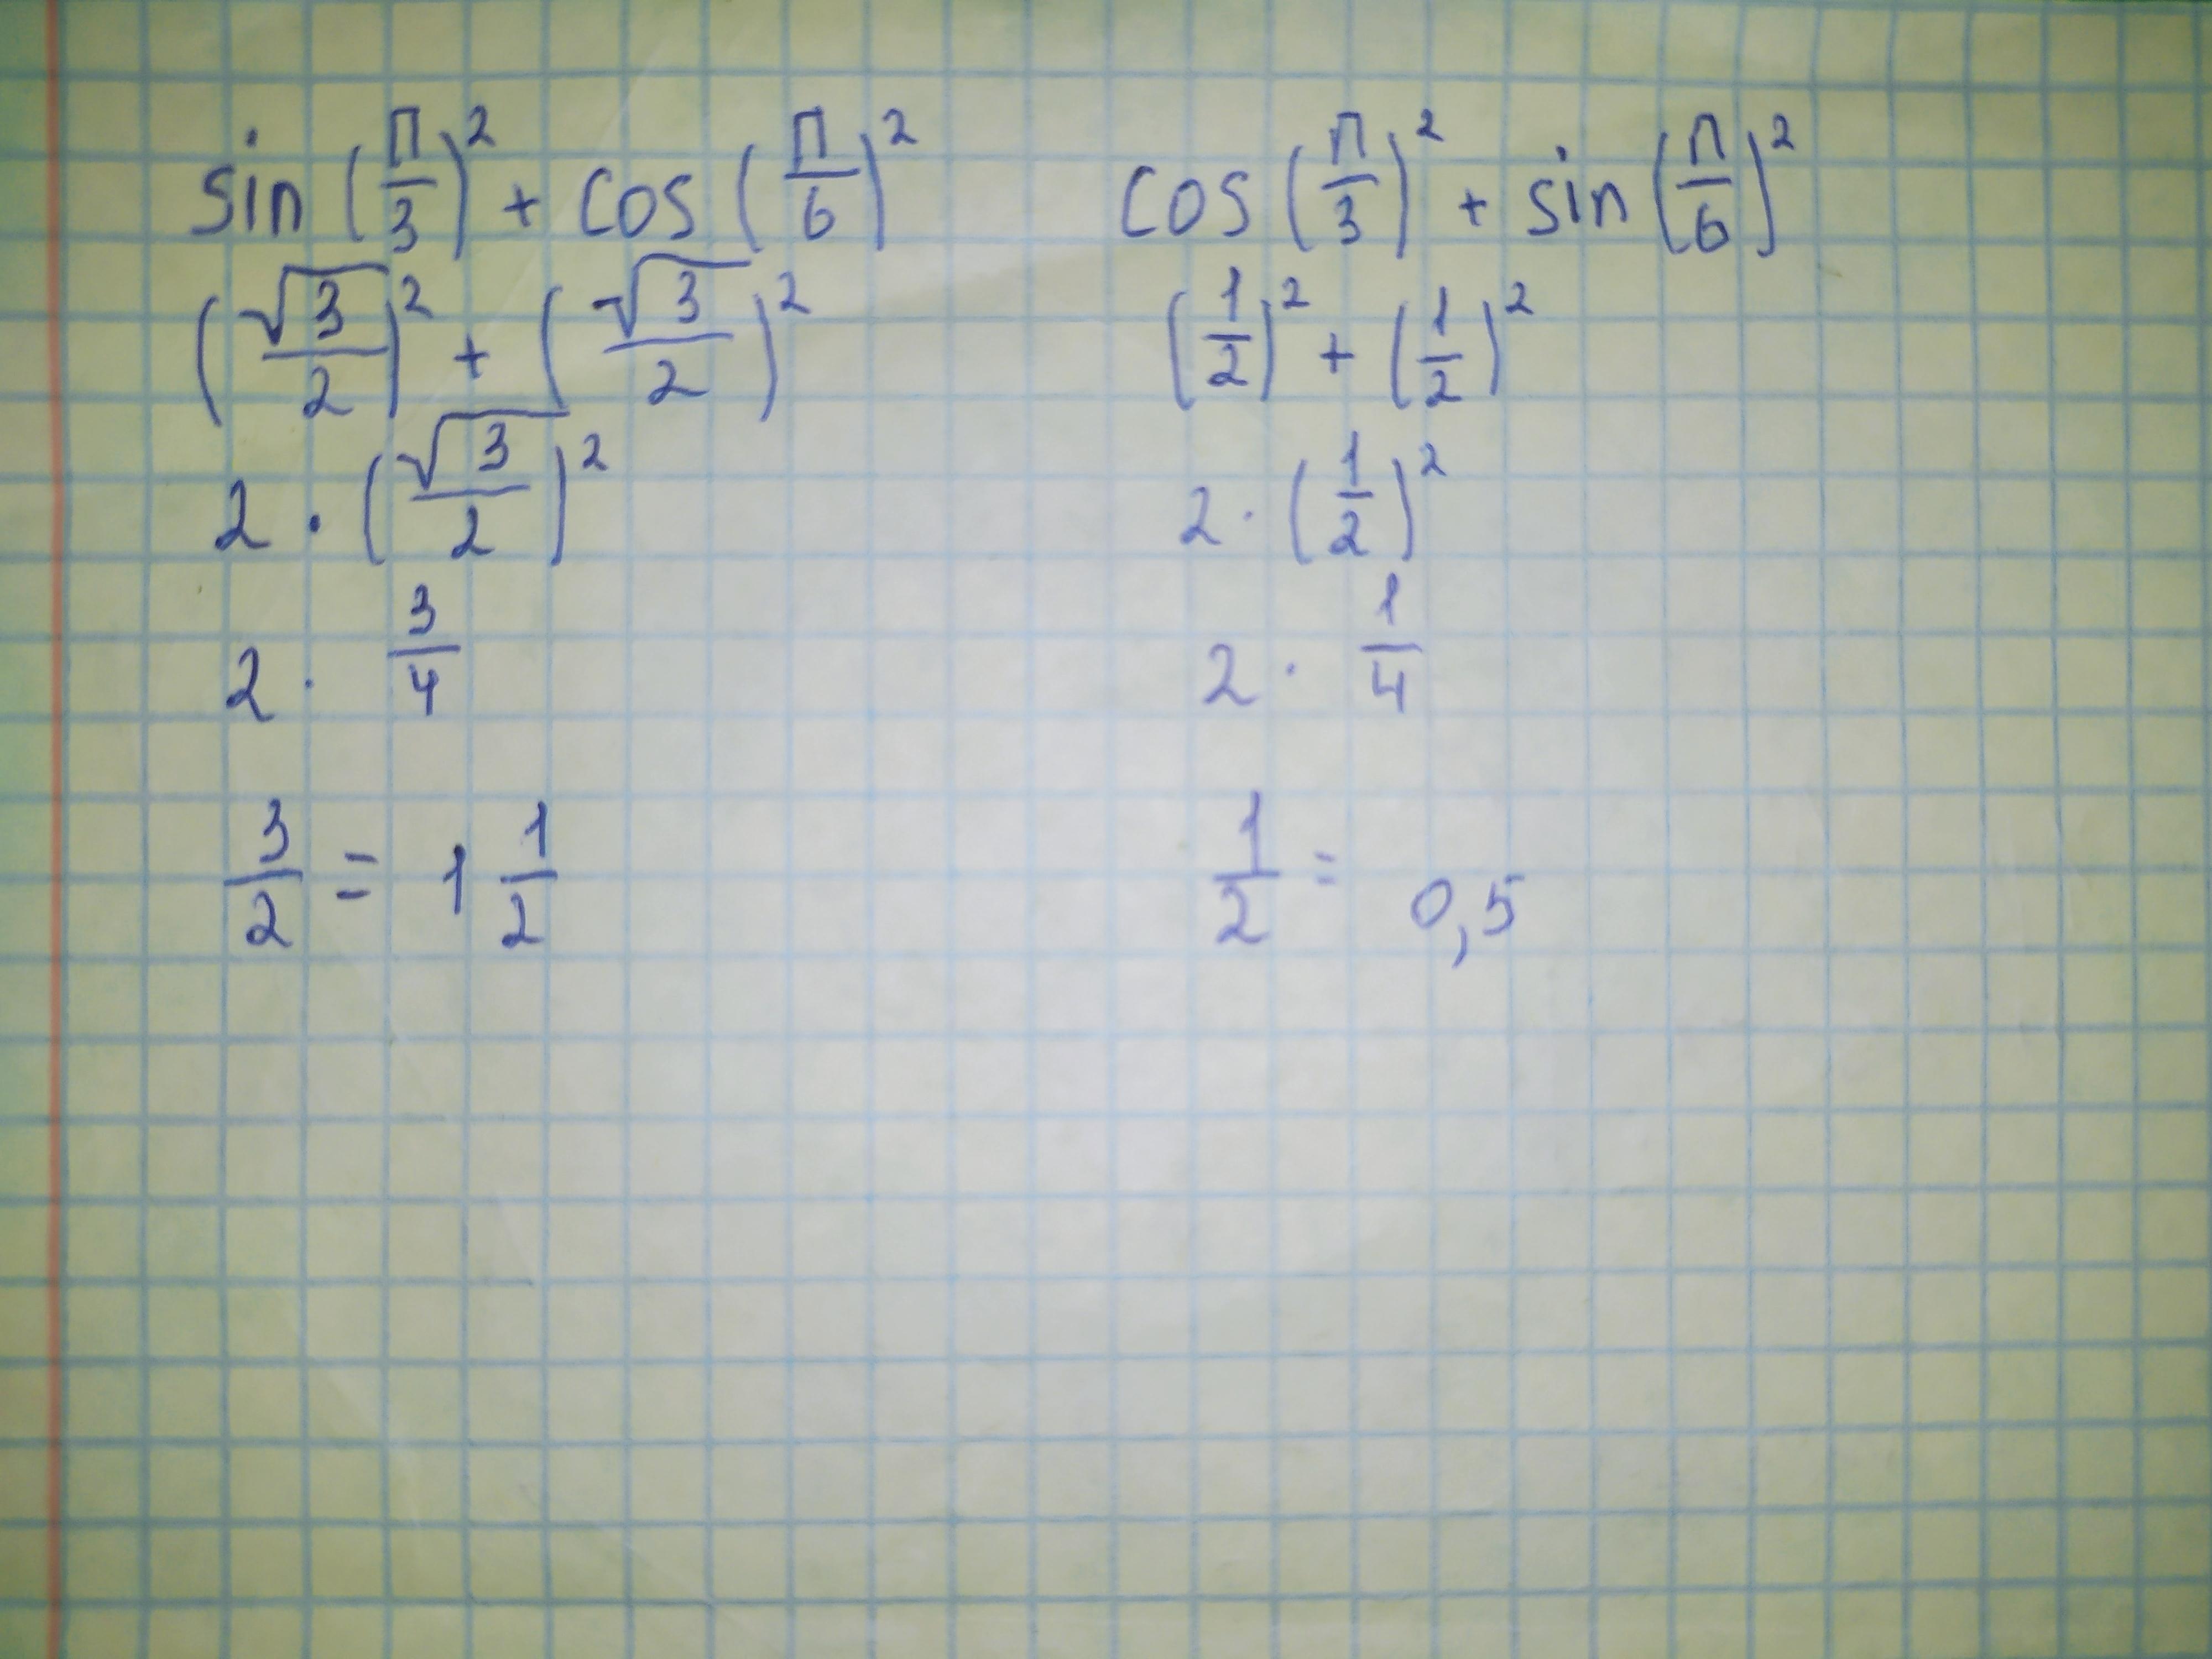 sin (π/3)² + cos (π/6)²
(√3/2)² + (√3/2)²
2 · (√3/2)²
2 · 3/4
3/2 = 1 1/2
cos (π/3)² + sin (π/6)²
(1/2)² + (1/2)²
2 · (1/2)²
2 · 1/4
1/2 = 0,5